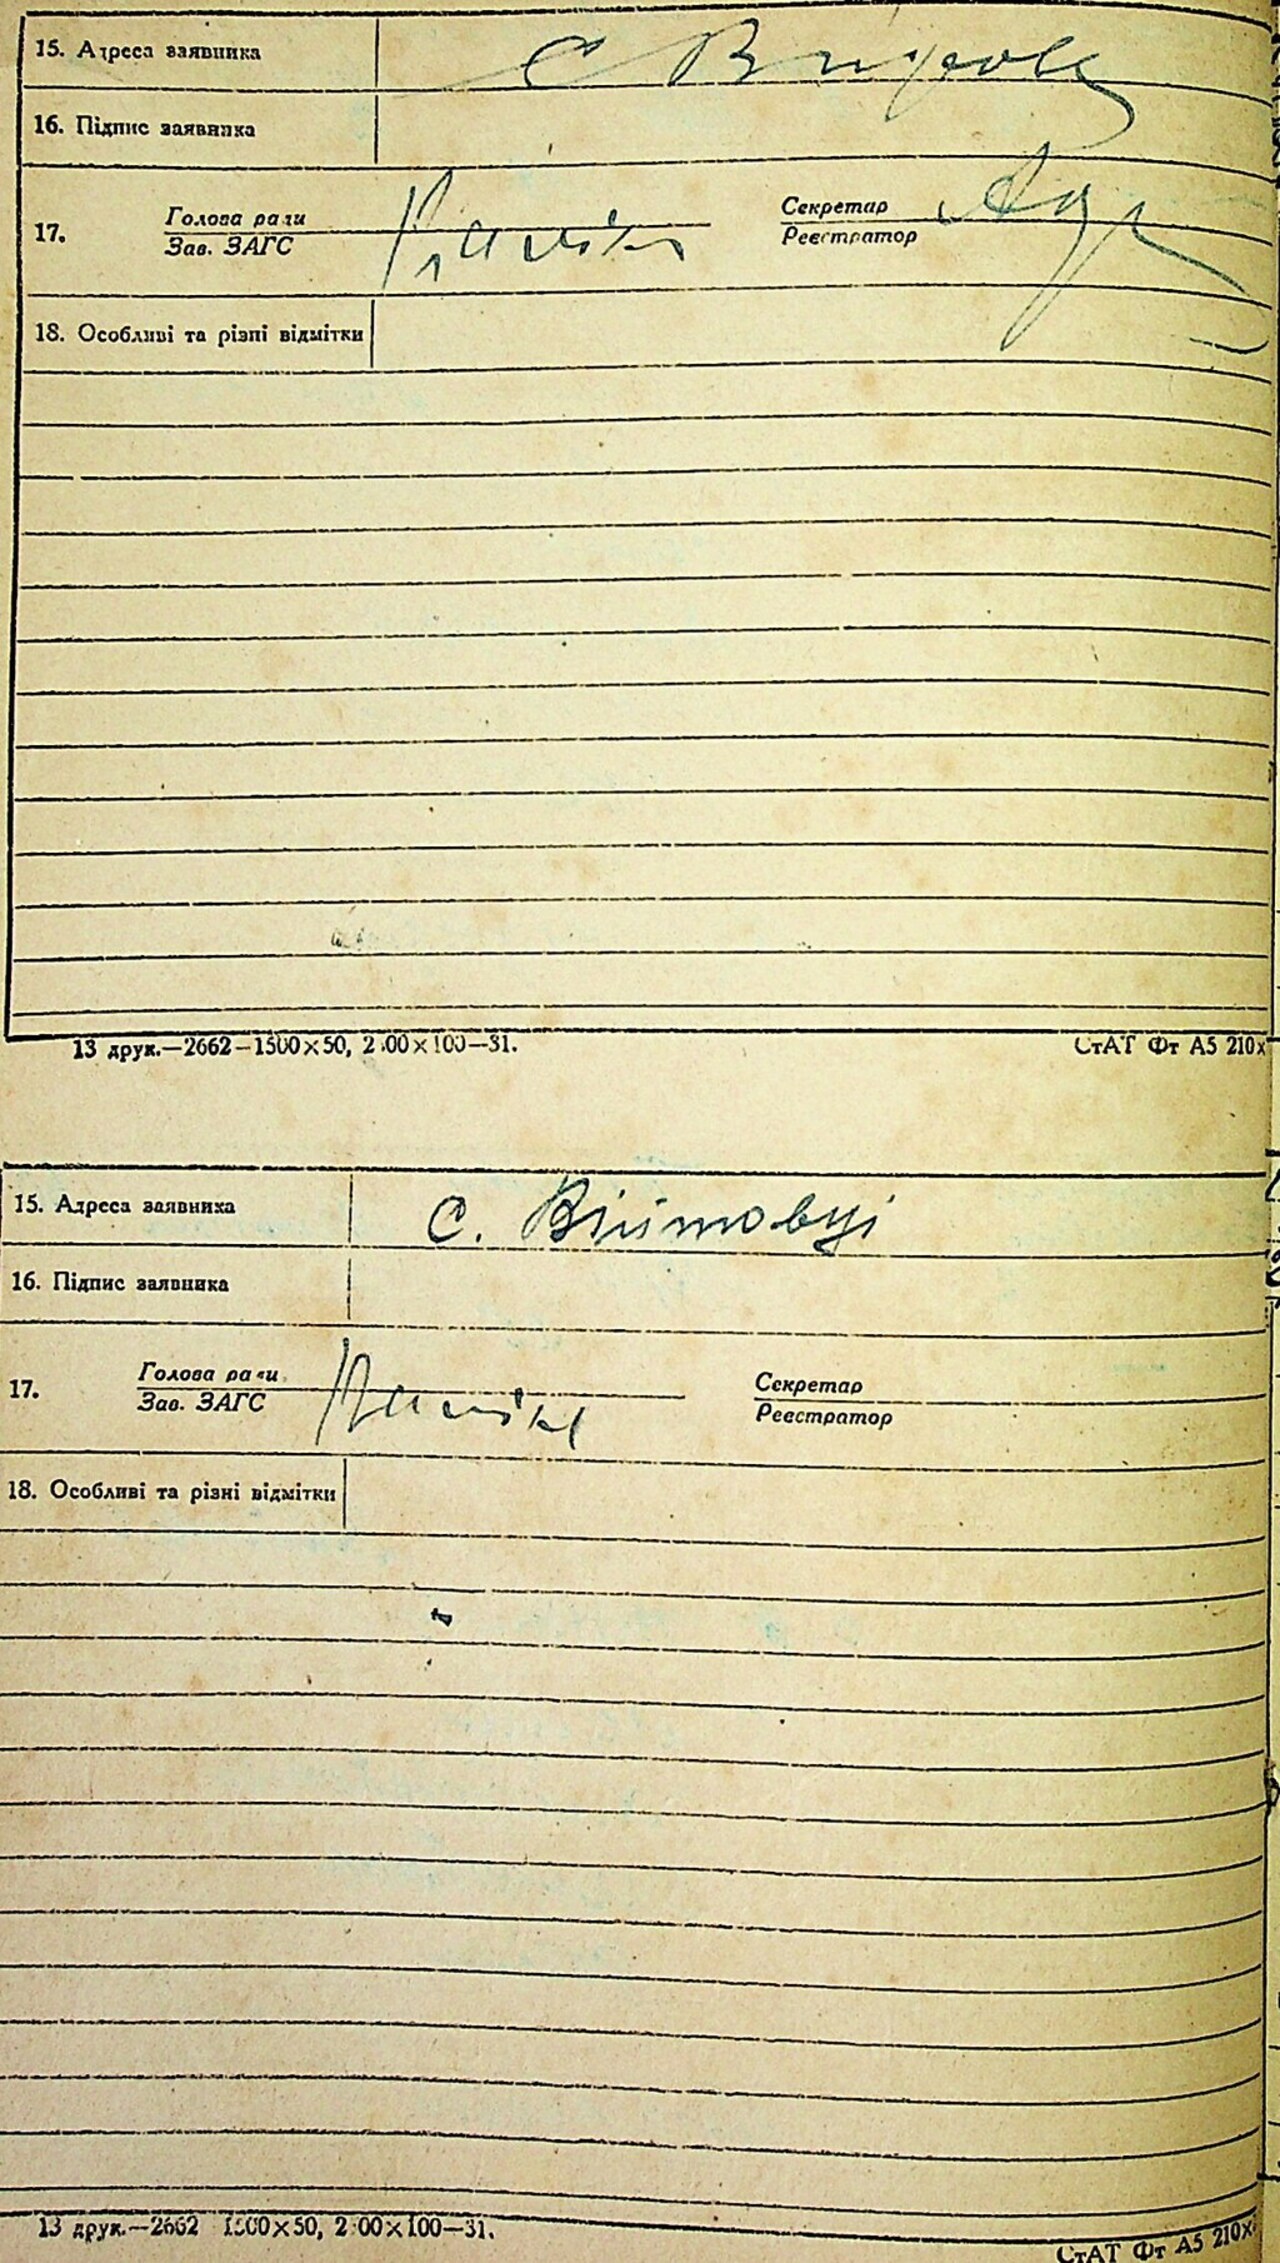 15. Адреса заявника с
16. Підпис заявника
17. Голова ради Секретар
Зав. ЗАГС Реєстратор
18. Особливі та різні відмітки
13 друк.—2662—1500×50, 2 00×100—31. СтАТ Фт А5 210×
15. Адреса заявника с. Війтовці
16. Підпис заявника
17. Голова ради Секретар
Зав. ЗАГС Реєстратор
18. Особливі та різні відмітки
13 друк.—2662 1500×50, 2 00×100—31.
СтАТ Фт А5 210×